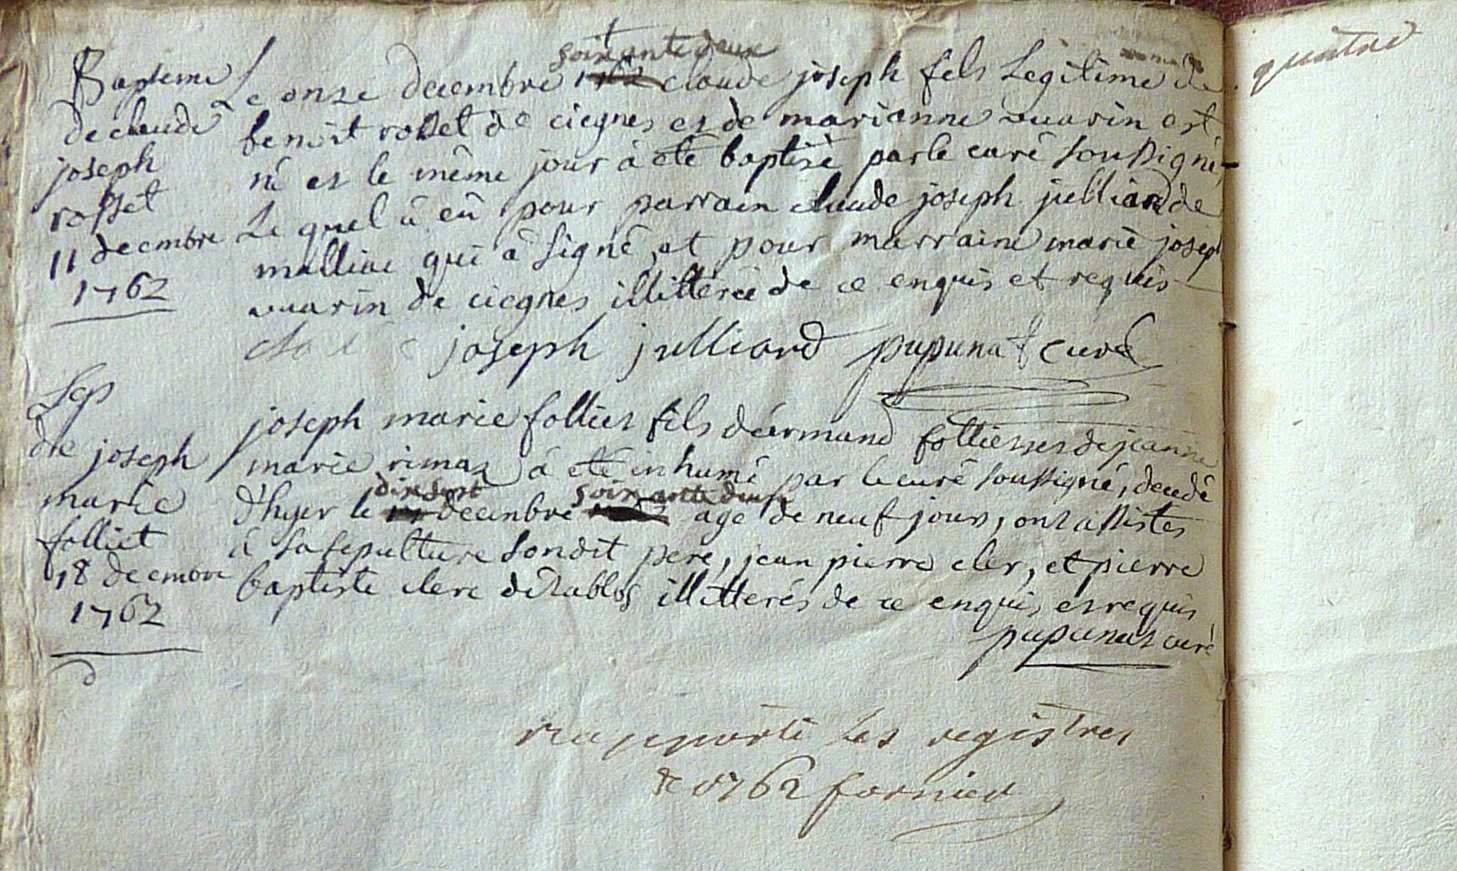 Bapteme
de claude
joseph
rosset
11 decembre
1762
soixante deux
Le onze decembre 1762 claude joseph fils Legitime de
benoit rosset de ciegnes et de marianne vuarin est
né et le même jour à eté baptisé par le curé soussigné,
Le quel à eü pour parrain claude joseph julliard de
malliac qui à signé, et pour marraine marie joseph
vuarin de ciegnes illitterée de ce enquis et requis
joseph julliard pupunat curé
Sep
de joseph
marie
folliet
18 decembre
1762
joseph marie folliet fils d'armand folliet et de jeanne
marie rimaz à eté inhumé par le curé soussigné, decedé
dixsept soixante deux
d'hyer le decembre agé de neuf jours, ont assistés
à sa sepulture sondit pere, jean pierre cler, et pierre
baptiste clerc illitterés de ce enquis et requis
pupunat curé
rapporté les registres
de 1762 fornier
quatre